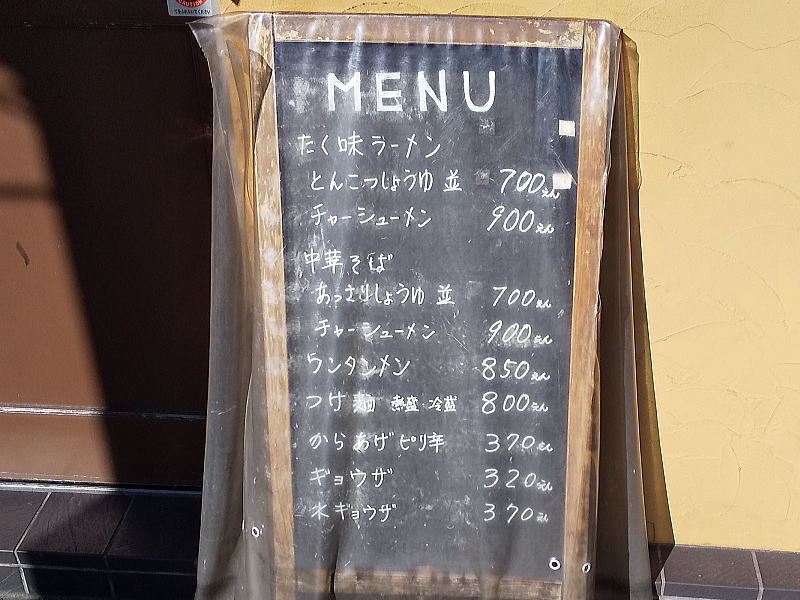 CAUTION
MENU
たく味ラーメン
とんこつしょうゆ 並 700えん
チャーシューメン 900えん
中華そば
あっさりしょうゆ 並 700えん
チャーシューメン 900えん
ワンタンメン 850えん
つけ麺 熱盛 冷盛 800えん
からあげピリ辛 370えん
ギョウザ 320えん
水ギョウザ 370えん